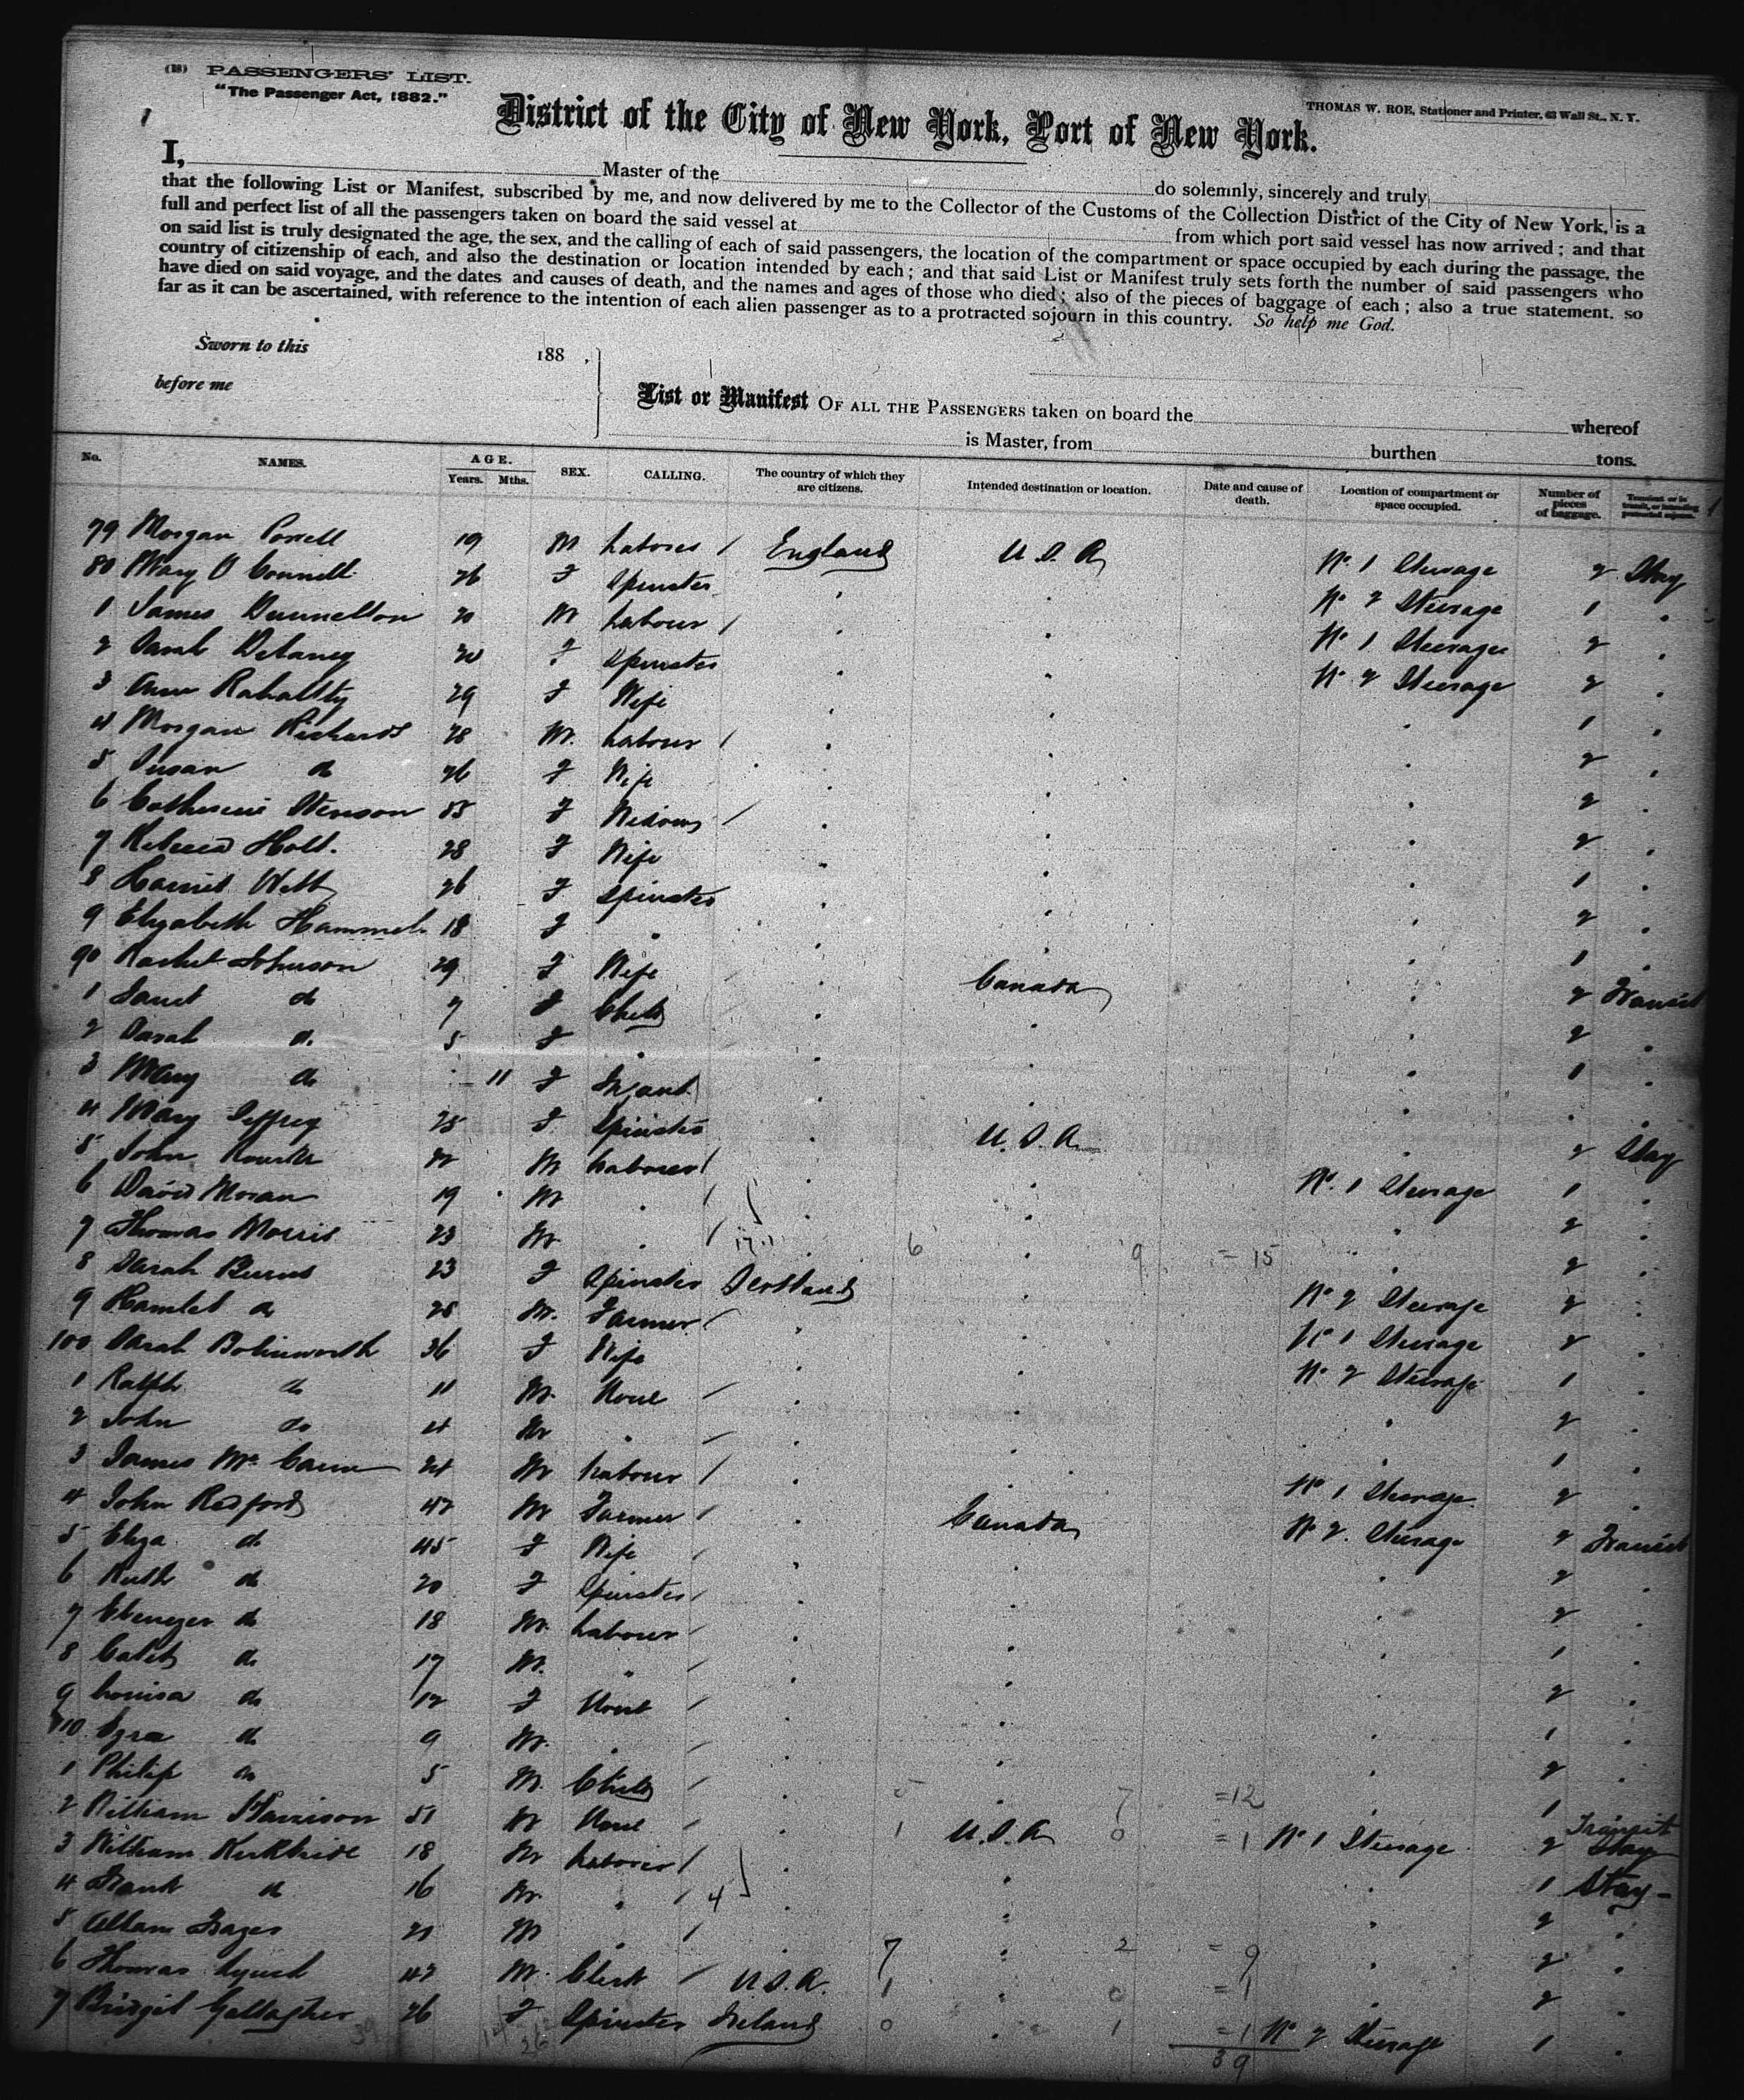 (18) PASSENGERS' LIST.
"The Passenger Act, 1882."
THOMAS W. ROE, Stationer and Printer, 63 Wall St., N. Y.
District of the City of New York, Port of New York.
I, Master of the do solemnly, sincerely and truly
that the following List or Manifest, subscribed by me, and now delivered by me to the Collector of the Customs of the Collection District of the City of New York, is a
full and perfect list of all the passengers taken on board the said vessel at from which port said vessel has now arrived; and that
on said list is truly designated the age, the sex, and the calling of each of said passengers, the location of the compartment or space occupied by each during the passage, the
country of citizenship of each, and also the destination or location intended by each; and that said List or Manifest truly sets forth the number of said passengers who
have died on said voyage, and the dates and causes of death, and the names and ages of those who died; also of the pieces of baggage of each; also a true statement, so
far as it can be ascertained, with reference to the intention of each alien passenger as to a protracted sojourn in this country. So help me God.
Sworn to this 188 ,
before me
List or Manifest OF ALL THE PASSENGERS taken on board the whereof
is Master, from burthen tons.
No. NAMES. AGE. Years. Mths. SEX. CALLING. The country of which they are citizens. Intended destination or location. Date and cause of death. Location of compartment or space occupied. Number of pieces of baggage. Transient or in transit, or intending protracted sojourn.
79 Morgan Powell 19 M Laborer England U.S.A No. 1 Steerage 2 Stay
80 Mary O Connell 26 F Spinster No. 2 Steerage 1
1 James 20 M Labourer No. 1 Steerage 2
2 Sarah Delaney 20 F Spinster No. 2 Steerage 2
3 Ann 29 F Wife 1
4 Morgan Richards 28 M. Labourer 2
5 Susan do 26 F Wife 2
6 Catherine 55 F Widow 2
7 Rebecca Holt. 28 F Wife 1
8 Harriet Webb 26 F Spinster 2
9 Elizabeth Hammel 18 F " 1
90 Rachel Johnson 29 F Wife Canada 2 Transit
1 Janet do 7 F Child 2
2 Sarah do 5 F 1
3 Mary do 11 F Infant
4 Mary Jeffrey 25 F Spinster U.S.A. 2 Stay
5 John Rourke 22 M Laborer No. 1 Steerage 1
6 David Moran 19 M 2
7 Thomas Morris 23 M 17 6 9 = 15 2
8 Sarah Burns 23 F Spinster Scotland No. 2 Steerage 2
9 Hamlet do 25 M. Farmer No. 1 Steerage 2
100 Sarah 36 F Wife No. 2 Steerage 1
1 Ralph do 11 M. None 2
2 John do 4 M " 1
3 James Mc Cann 24 M Labourer No. 1 Steerage 2
4 John Redford 42 M Farmer Canada No. 2. Steerage 2 Transit
5 Eliza do 45 F Wife 2
6 Ruth do 20 F Spinster 2
7 Ebenezer do 18 M. Labourer 1
8 Caleb do 17 M. " 2
9 Louisa do 12 F None 1
110 Ezra do 9 M. 2
1 Philip do 5 M. Child 5 7 =12 1 Transit
2 William Harrison 51 M None 1 U.S.A 0 = 1 No. 1 Steerage 2 Stay
3 William Kirkbride 18 M Laborer 1 Stay
4 Frank do 16 M " 4 2
5 21 M 7 2 = 9 2
6 Thomas Lynch 42 M. Clerk U.S.A. 1 0 = 1 2
7 Bridget Gallagher 26 F Spinster Ireland 0 1 = 1 No. 2 Steerage 1
39 14 26 39